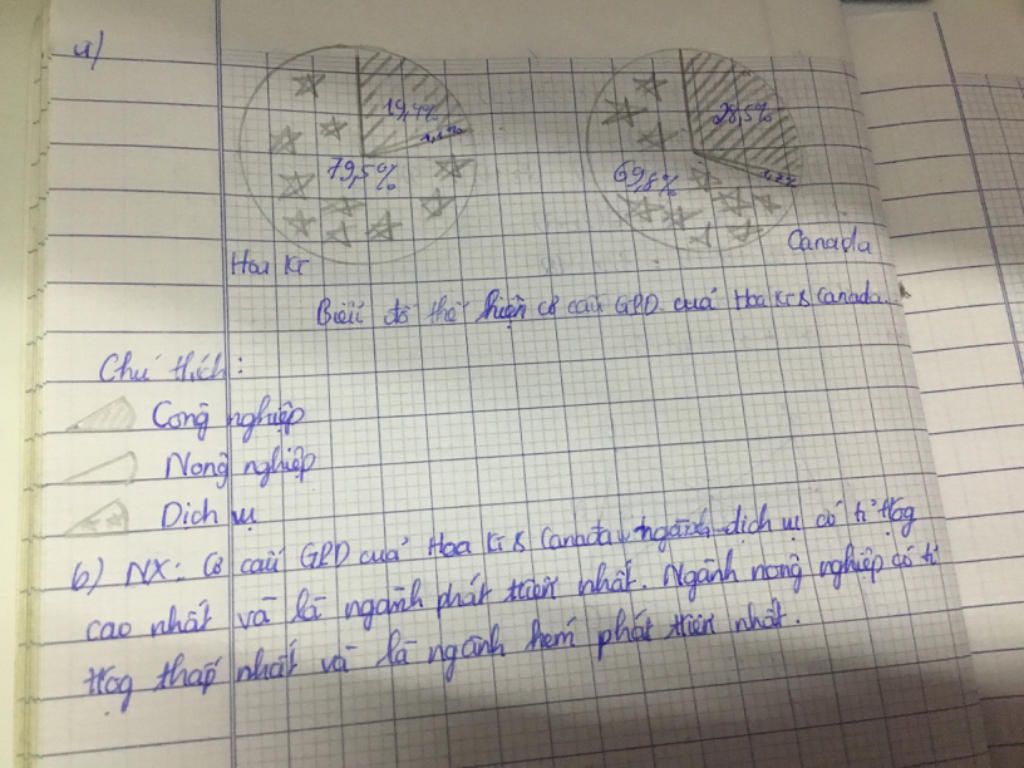 a)
19,4%
1,1%
79,5%
28,5%
69,8%
Hoa Kì
Canada
Biểu đồ thể hiện cơ cấu GPD của Hoa Kì & Canada.
Chú thích:
Công nghiệp
Nông nghiệp
Dịch vụ
b) NX: Cơ cấu GPD của Hoa Kì & Canada, ngành dịch vụ có tỉ trọg
cao nhất và là ngành phát triển nhất. Ngành nông nghiệp có tỉ
trọg thấp nhất và là ngành kém phát triển nhất.